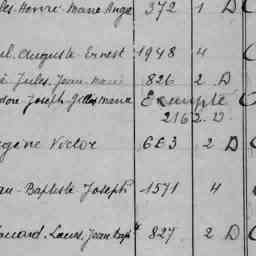 les Hervé Marie Ange 372 1 D
Auguste Ernest 1948 4
Jules Jean Marie 826 2 D
Joseph Gilles Marie Exempté
2162 D
Eugène Victor 663 2 D
Jean-Baptiste Joseph 1571 4
Edouard, Louis, Jean Bapte 827 2 D